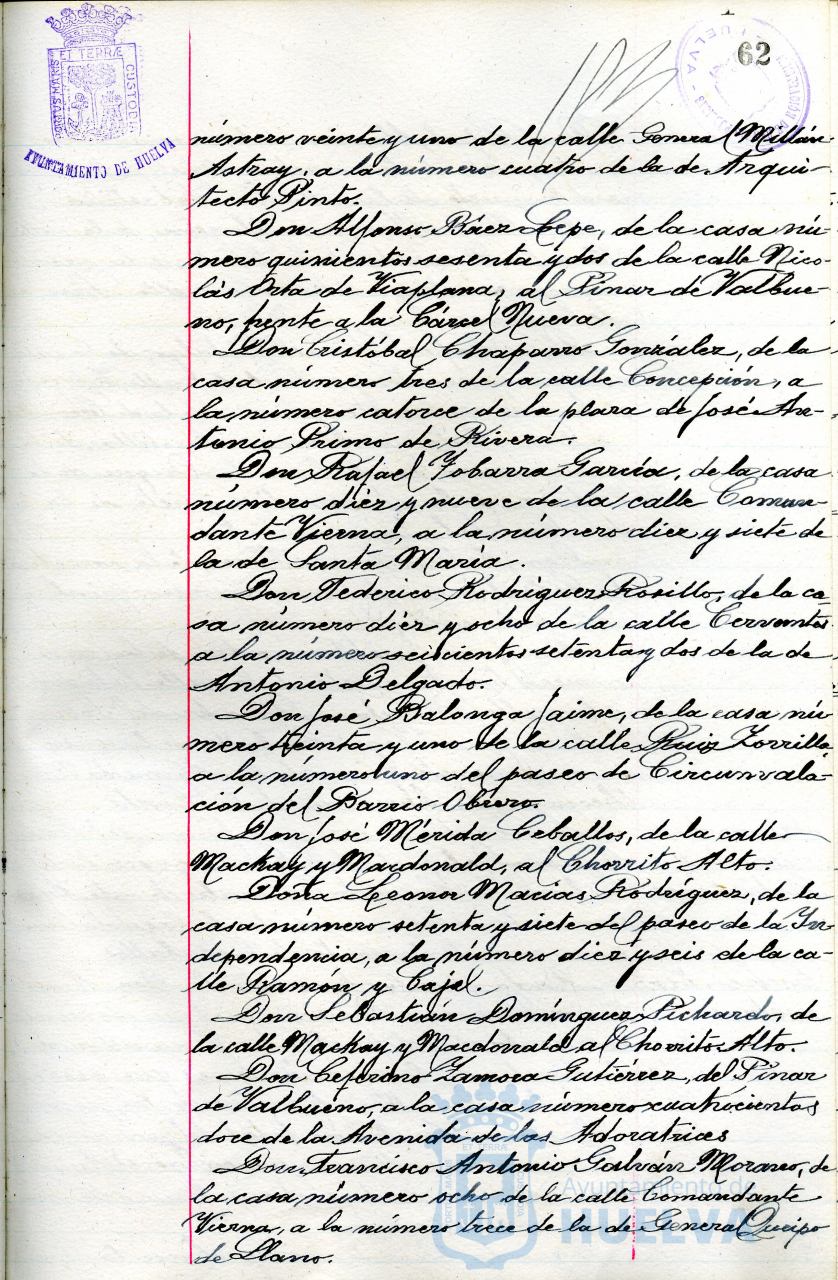 62
PORTUS MARIS ET TERRÆ CUSTODIA
AYUNTAMIENTO DE HUELVA
número veinte y uno de la calle General Millán-
Astray, a la número cuatro de la de Arqui-
tecto Pinto.
Don Alfonso Báez Lepe, de la casa nú-
mero quinientos sesenta y dos de la calle Nico-
lás Orta de Viaplana, al Pinar de Valbue-
no, frente a la Cárcel Nueva.
Don Cristóbal Chaparro González, de la
casa número tres de la calle Concepción, a
la número catorce de la plaza de José An-
tonio Primo de Rivera.
Don Rafael Gobarra García, de la casa
número diez y nueve de la calle Coman-
dante Vierna, a la número diez y siete de
la de Santa María.
Don Federico Rodríguez Rosillo, de la ca-
sa número diez y ocho de la calle Cervantes
a la número seiscientos setenta y dos de la de
Antonio Delgado.
Don José Balonga Jaime, de la casa nú-
mero treinta y uno de la calle Ruiz Zorrilla
a la número uno del paseo de Circunvala-
ción del Barrio Obrero.
Don José Mérida Ceballos, de la calle
Mackay y Mardonald, al Chorrito Alto.
Doña Leonor Macías Rodríguez, de la
casa número setenta y siete del paseo de la In-
dependencia, a la número diez y seis de la ca-
lle Ramón y Cajal.
Don Sebastián Domínguez Pichardo, de
la calle Mackay y Macdonald al Chorrito Alto.
Don Ceferino Zamora Gutiérrez, del Pinar
de Valbueno, a la casa número cuatrocientos
doce de la Avenida de las Adoratrices
Don Francisco Antonio Galván Morano, de
la casa número ocho de la calle Comandante
Vierna, a la número trece de la de General Queipo
de Llano.
Ayuntamiento de
HUELVA